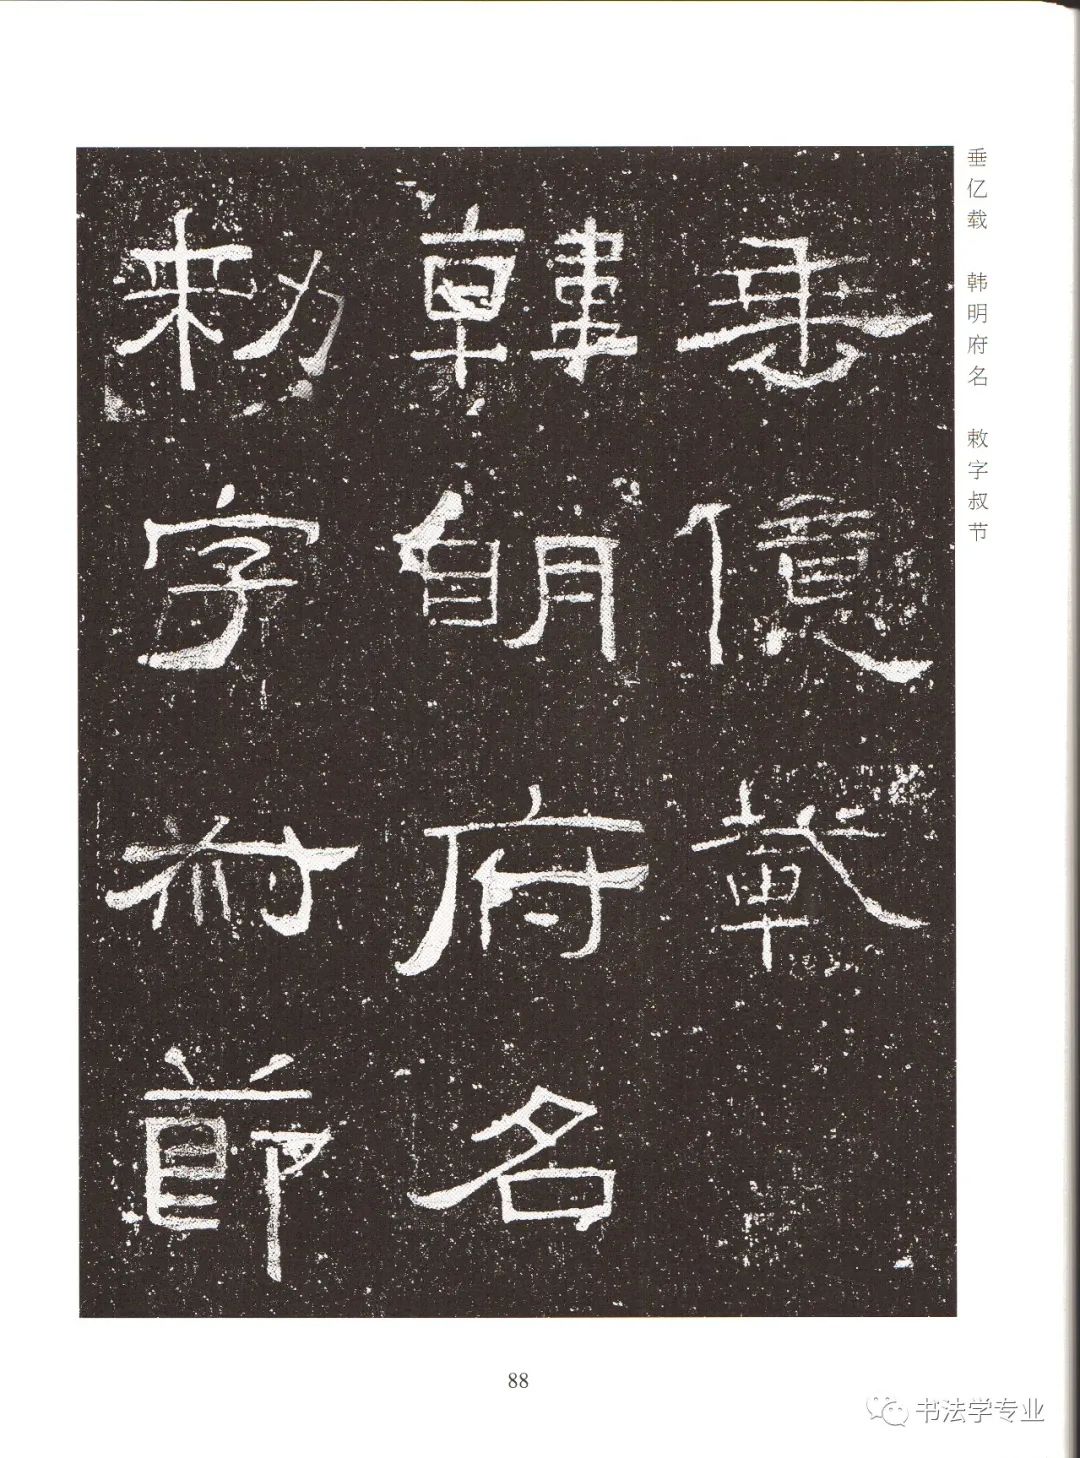 垂億載
韓明府名
勑字叔節
垂亿载 韩明府名 敕字叔节
88
书法学专业